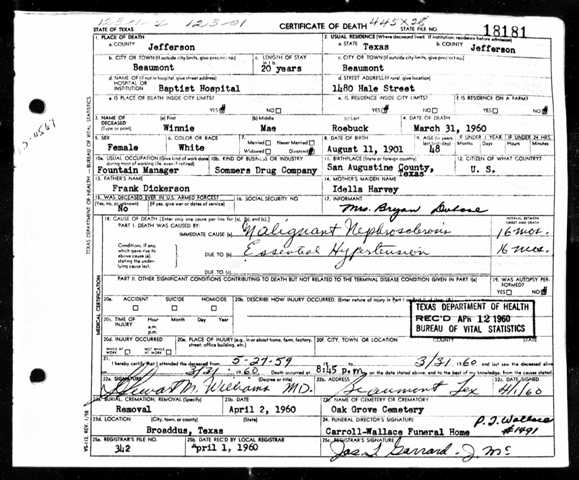 CERTIFICATE OF DEATH
STATE OF TEXAS
STATE FILE NO.
18181
1. PLACE OF DEATH
2. USUAL RESIDENCE (Where deceased lived. If institution: residence before admission)
a. COUNTY
Jefferson
a. STATE
Texas
b. COUNTY
Jefferson
b. CITY OR TOWN (If outside city limits, give precinct no.)
c. LENGTH OF STAY
c. CITY OR TOWN (If outside city limits, give precinct no.)
Beaumont
20 years
Beaumont
d. NAME OF (If not in hospital, give street address)
HOSPITAL OR
INSTITUTION
Baptist Hospital
d. STREET ADDRESS (If rural, give location)
1480 Hale Street
e. IS PLACE OF DEATH INSIDE CITY LIMITS?
YES NO
e. IS RESIDENCE INSIDE CITY LIMITS?
YES NO
f. IS RESIDENCE ON A FARM?
YES NO
3. NAME OF
DECEASED
(Type or print)
(a) First
Winnie
(b) Middle
Mae
(c) Last
Roebuck
4. DATE OF DEATH
March 31, 1960
5. SEX
Female
6. COLOR OR RACE
White
7. Married Never Married
Widowed Divorced
8. DATE OF BIRTH
August 11, 1901
9. AGE
48
10a. USUAL OCCUPATION (Give kind of work done
Fountain Manager
10b. KIND OF BUSINESS OR INDUSTRY
Sommers Drug Company
11. BIRTHPLACE (State or foreign country)
San Augustine County,
Texas
12. CITIZEN OF WHAT COUNTRY?
U. S.
13. FATHER'S NAME
Frank Dickerson
14. MOTHER'S MAIDEN NAME
Idella Harvey
15. WAS DECEASED EVER IN U.S. ARMED FORCES?
No
16. SOCIAL SECURITY NO.
17. INFORMANT
Mrs. Bryan
18. CAUSE OF DEATH (Enter only one cause per line for (a), (b), and (c).)
PART I. DEATH WAS CAUSED BY:
IMMEDIATE CAUSE (a)
Malignant Nephrosclerosis
16 mos.
Conditions, if any,
which gave rise to
above cause (a),
stating the under-
lying cause last.
DUE TO (b)
Essential Hypertension
16 mos.
DUE TO (c)
PART II. OTHER SIGNIFICANT CONDITIONS CONTRIBUTING TO DEATH BUT NOT RELATED TO THE TERMINAL DISEASE CONDITION GIVEN IN PART I(a)
19. WAS AUTOPSY PERFORMED?
YES NO
20a. ACCIDENT SUICIDE HOMICIDE
20b. DESCRIBE HOW INJURY OCCURRED.
20c. TIME OF
INJURY
Hour Month Day Year
a.m.
p.m.
TEXAS DEPARTMENT OF HEALTH
REC'D APR 12 1960
BUREAU OF VITAL STATISTICS
20d. INJURY OCCURRED
20e. PLACE OF INJURY (e.g. in or about home, farm, factory, street, office building, etc.)
20f. CITY, TOWN, OR LOCATION
COUNTY
STATE
21. I hereby certify that I attended the deceased from 5-27-59 3/31 1960 and last saw the deceased alive
3/31 1960 Death occurred at 8:45 P.m. on the date stated above, and to the best of my knowledge, from the causes stated.
22a. SIGNATURE
Stewart M. Williams M.D.
(Degree or title)
22b. ADDRESS
Beaumont Tex
22c. DATE SIGNED
4/1/60
23a. BURIAL, CREMATION, REMOVAL (Specify)
Removal
23b. DATE
April 2, 1960
23c. NAME OF CEMETERY OR CREMATORY
Oak Grove Cemetery
23d. LOCATION (City, town, or county) (State)
Broaddus, Texas
24. FUNERAL DIRECTOR'S SIGNATURE
Carroll-Wallace Funeral Home
P. J. Wallace
#1491
25a. REGISTRAR'S FILE NO.
342
25b. DATE REC'D BY LOCAL REGISTRAR
April 1, 1960
25c. REGISTRAR'S SIGNATURE
TEXAS DEPARTMENT OF HEALTH — BUREAU OF VITAL STATISTICS
MEDICAL CERTIFICATION